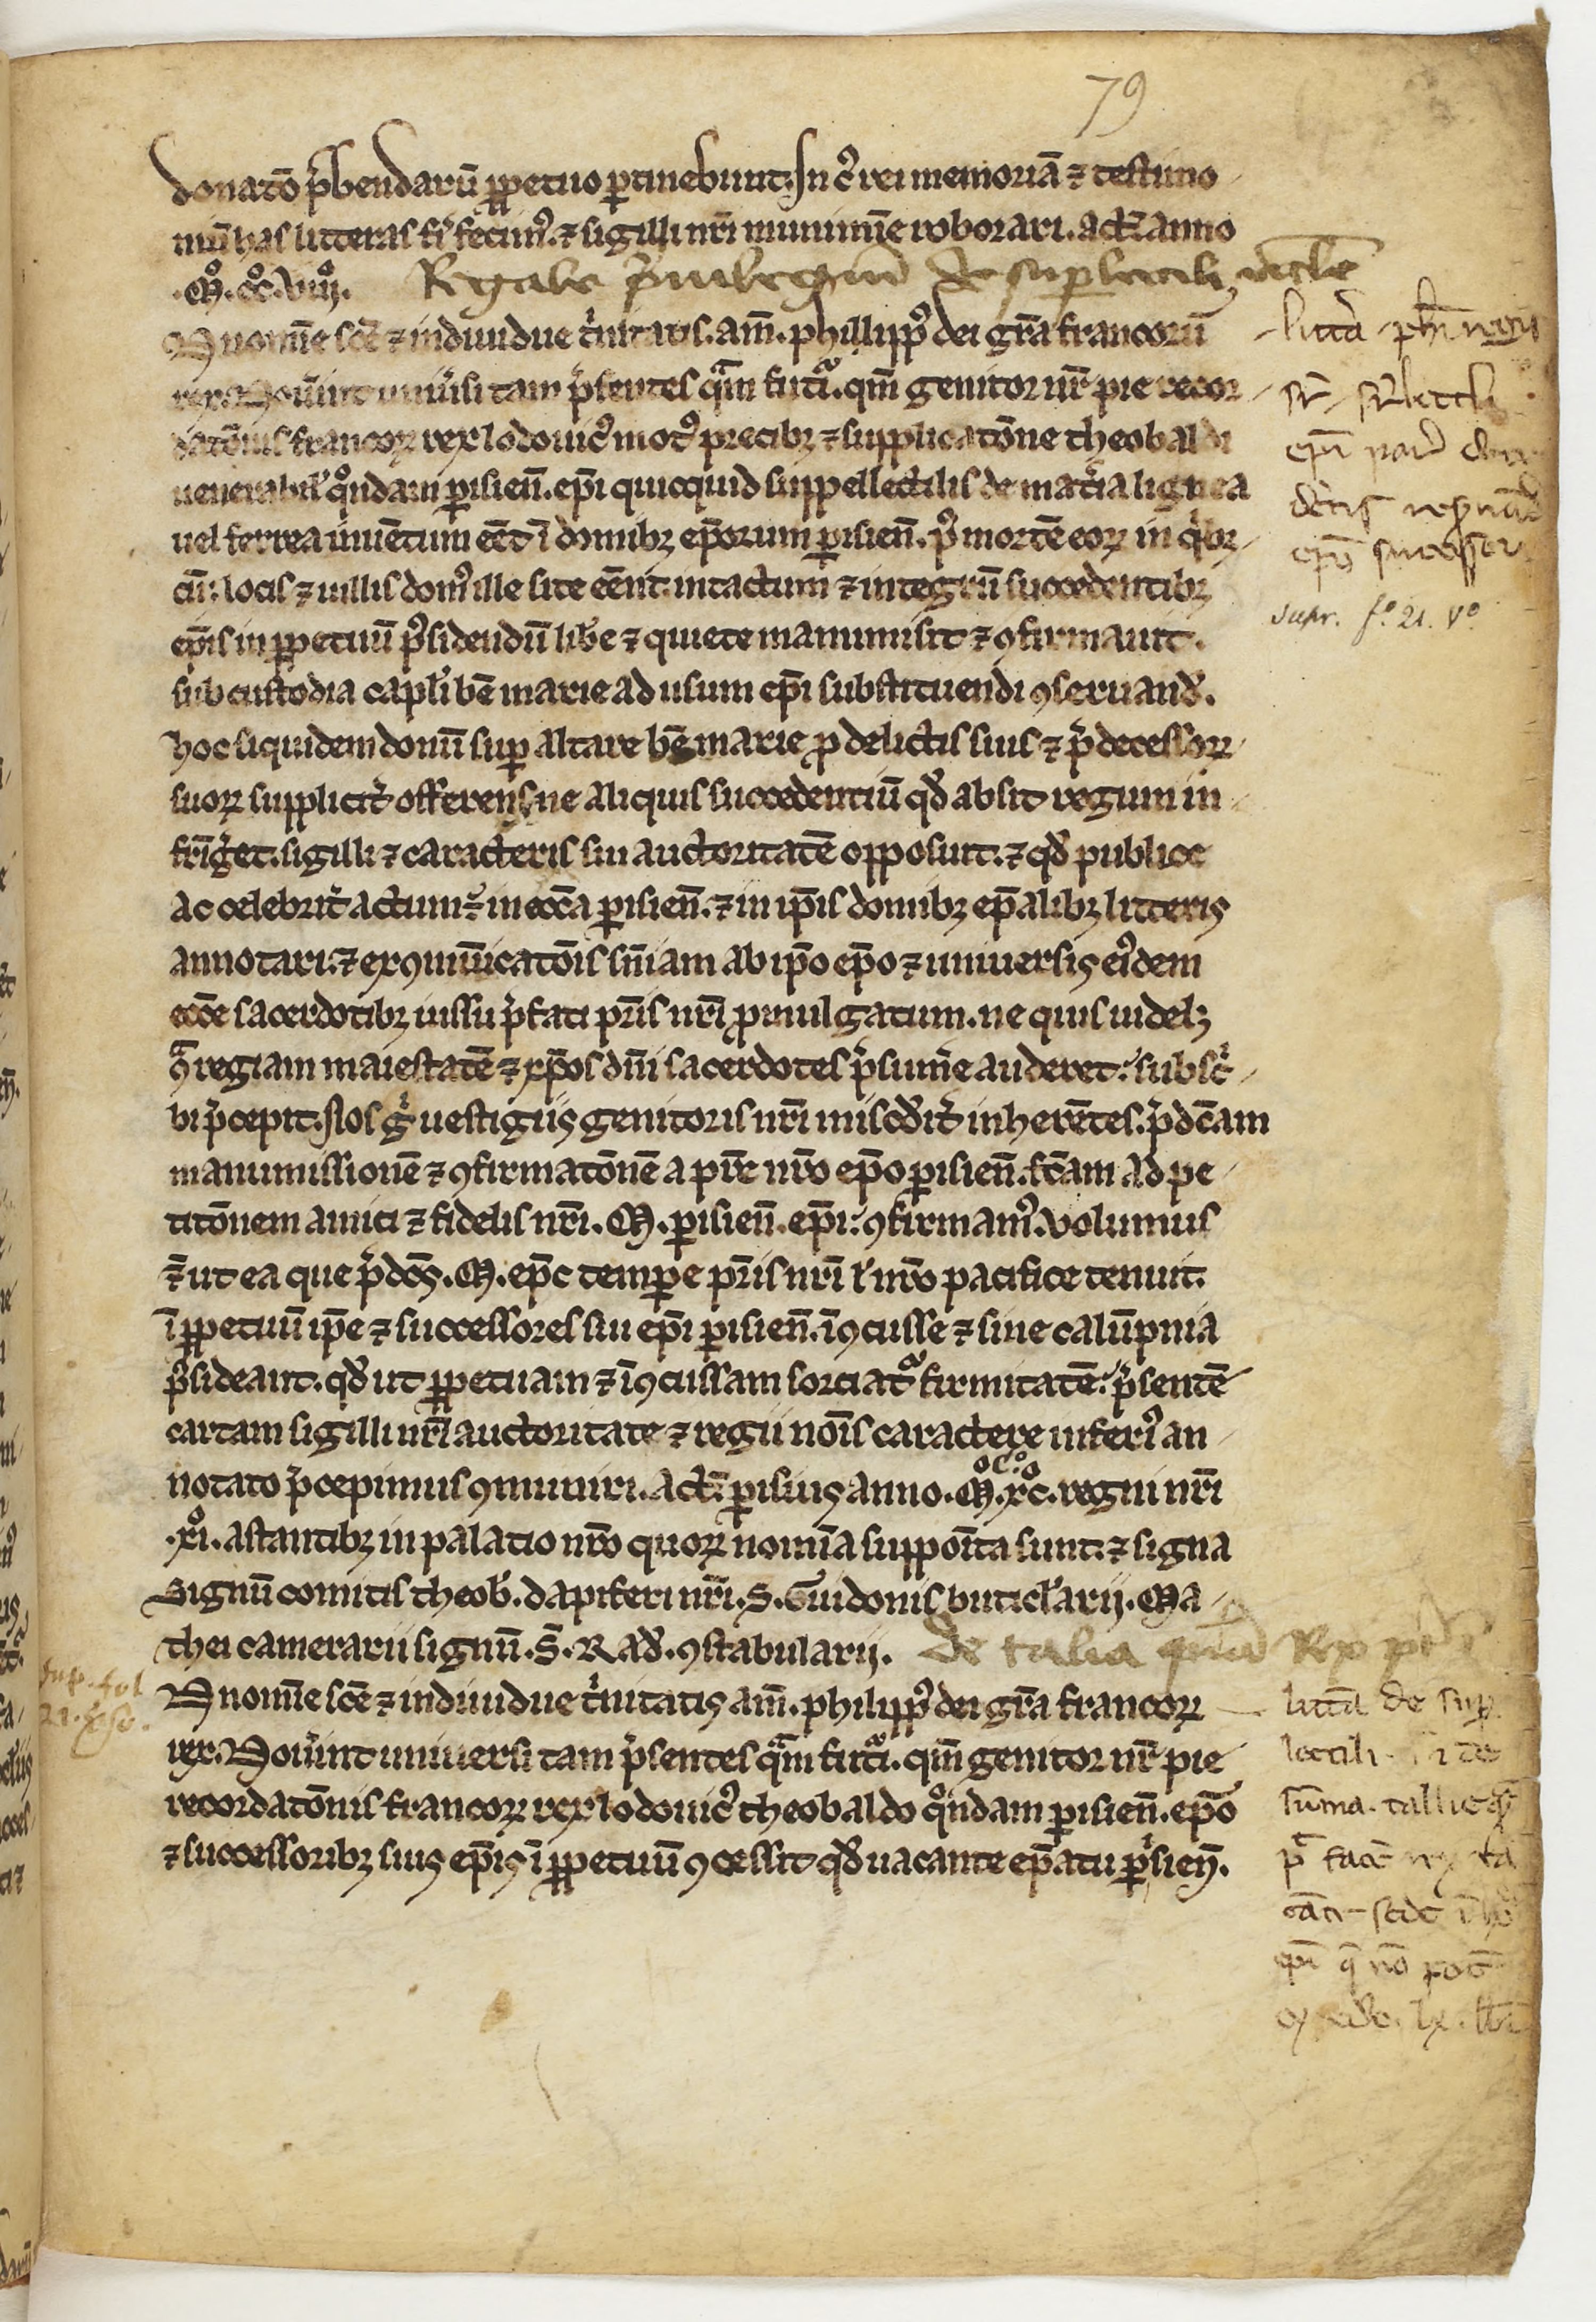 79
donatō p̄bendarū ꝑpetuo ꝑtinebunt. In c̄ rei memoriā ⁊ testimo
niū has litteras fi᷑ fecimꝰ. ⁊ sigilli nr̄i munimīe roborari. actū anno
.Mº. ccº. viijº. Regale p̄uilegiū de suꝑlectili
N nomīe sc̄e ⁊ indiuidue t̄nitatis. am̄. phillippꝰ dei gr̄a francorū
rex. Nou̾int uniu̾si tam p̄sentes qᷓm futᷓi. qm̄ genitor nr̄ pie recor
datōis francoꝝ rex lodouicꝰ motꝰ precibꝫ ⁊ supplicatōne theobaldi
uenerabil̓ qͦndam ꝑisieñ. ep̄i quicquid suppellectilis de mat̾ia lignea
uel ferrea inuētum eēt ī domibꝫ ep̄orum ꝑisieñ. pꝰ mortē eoꝝ in qͥbꝫ
cū locis ⁊ uillis domꝰ ille site eēnt. intactum ⁊ integrū succedentibꝫ
ep̄is in ꝑpetuū pͦsidendū libe ⁊ quiete manumisit ⁊ ꝯfirmauit.
sub custodia capl̓i bē marie ad usum ep̄i substituendi ꝯseruand̓.
hoc siquidem donū suꝑ altare bē marie ꝓ delictis suis ⁊ p̄decessoꝝ
suoꝝ suppliciт̾ offerens. ne aliquis succedentiū qd̓ absit regum in
frīg̾et. sigilli ⁊ caracteris sui auctoritatē opposuit. ⁊ qd̓ publice
ac celebriт̾ actum ē. in ecc̄a ꝑisieñ. ⁊ in ip̄is domibꝫ ep̄alibꝫ litteris
annotari. ⁊ exꝯmūicatōis sn̄iam ab ip̄o ep̄o ⁊ uniuersis eiꝰdem
ecc̄e sacerdotibꝫ iussu p̄fati pr̄is nr̄i ꝓmulgatum. ne quis uidelꝫ
ꝯᷓ regiam maiestatē ⁊ xp̄os dn̄i sacerdotes p̄sum̾e auderet. subsc̾
bi p̄cepit. Nos gͥ uestigiis genitoris nr̄i miscd̓iт̾ inherētes. p̄dc̄am
manumissionē ⁊ ꝯfirmatōnē a pr̄e nr̄o ep̄o ꝑisieñ. fc̄am ad pe
titōnem amici ⁊ fidelis nr̄i. M. ꝑisieñ. ep̄i. ꝯfirmamꝰ. Volumus
⁊ ut ea que p̄dc̄s. M. ep̄c temꝑe pr̄is nr̄i l̓ nr̄o pacifice tenuit.
ī ꝑpetuū ip̄e ⁊ successores sui ep̄i ꝑisieñ. īꝯcusse ⁊ sine calūpnia
pͦsideant. qd̓ ut ꝑpetuam ⁊ īꝯcussam sorciatᷣ firmitatē. p̄sentē
cartam sigilli nr̄i auctoritate ⁊ regii noīs caractere inferiꝰ an
notato p̄cepimus ꝯmuniri. actū ꝑisius anno. Mº. cº. xcº. regni nr̄i
.xiº. astantibꝫ in palatio nr̄o quoꝝ nomīa suppoīta sunt. ⁊ signa
Signū comitis theob̓. dapiferi nr̄i. S. Guidonis buticl̓arij. Ma
thei camerarii signū. S. Rad̓. ꝯstabularij. de talia Rex
N nomīe sc̄e ⁊ indiuidue t̄nitatis am̄. philippꝰ dei gr̄a francoꝝ
rex. Nou̾int uniuersi tam p̄sentes qᷓm futᷓi. qm̄ genitor nr̄ pie
recordatōnis francoꝝ rex lodouicꝰ theobaldo qͦndam ꝑisieñ. ep̄o
⁊ successoribꝫ suis ep̄is ī ꝑpetuū ꝯcessit qd̓ uacante ep̄atu ꝑisieñ.
supr. fº. 21. vº
sup. fol
21.